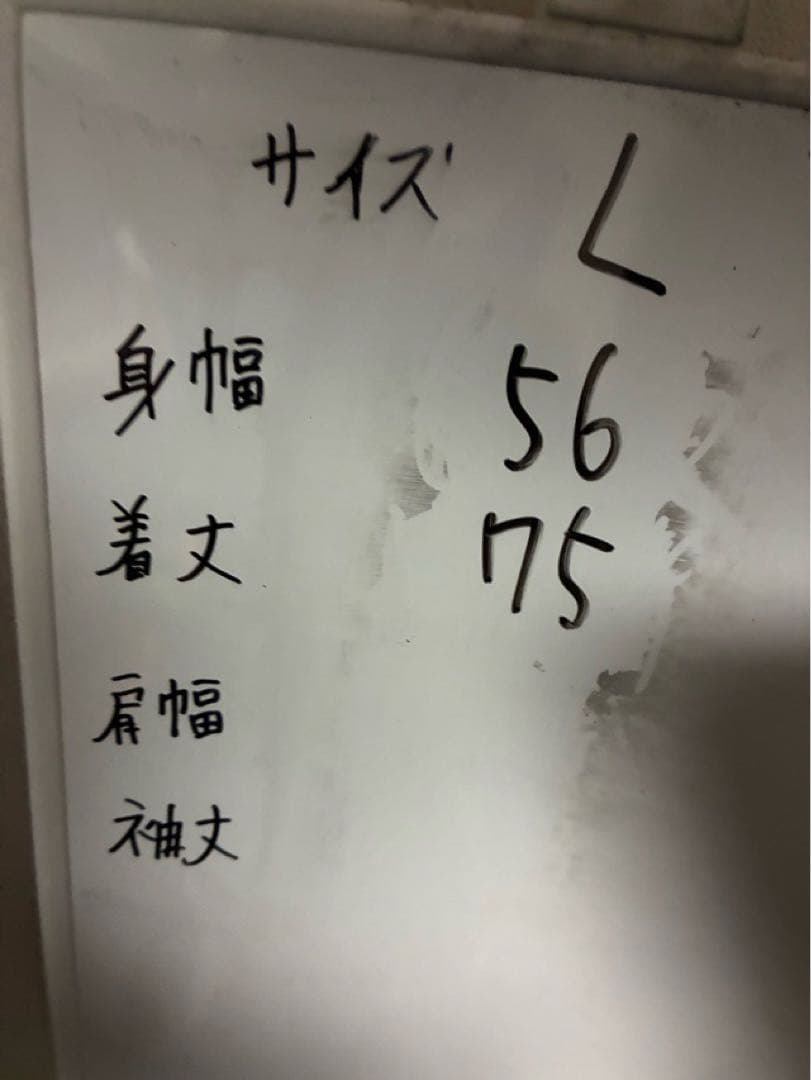 サイズ L
身幅 56
着丈 75
肩幅
袖丈